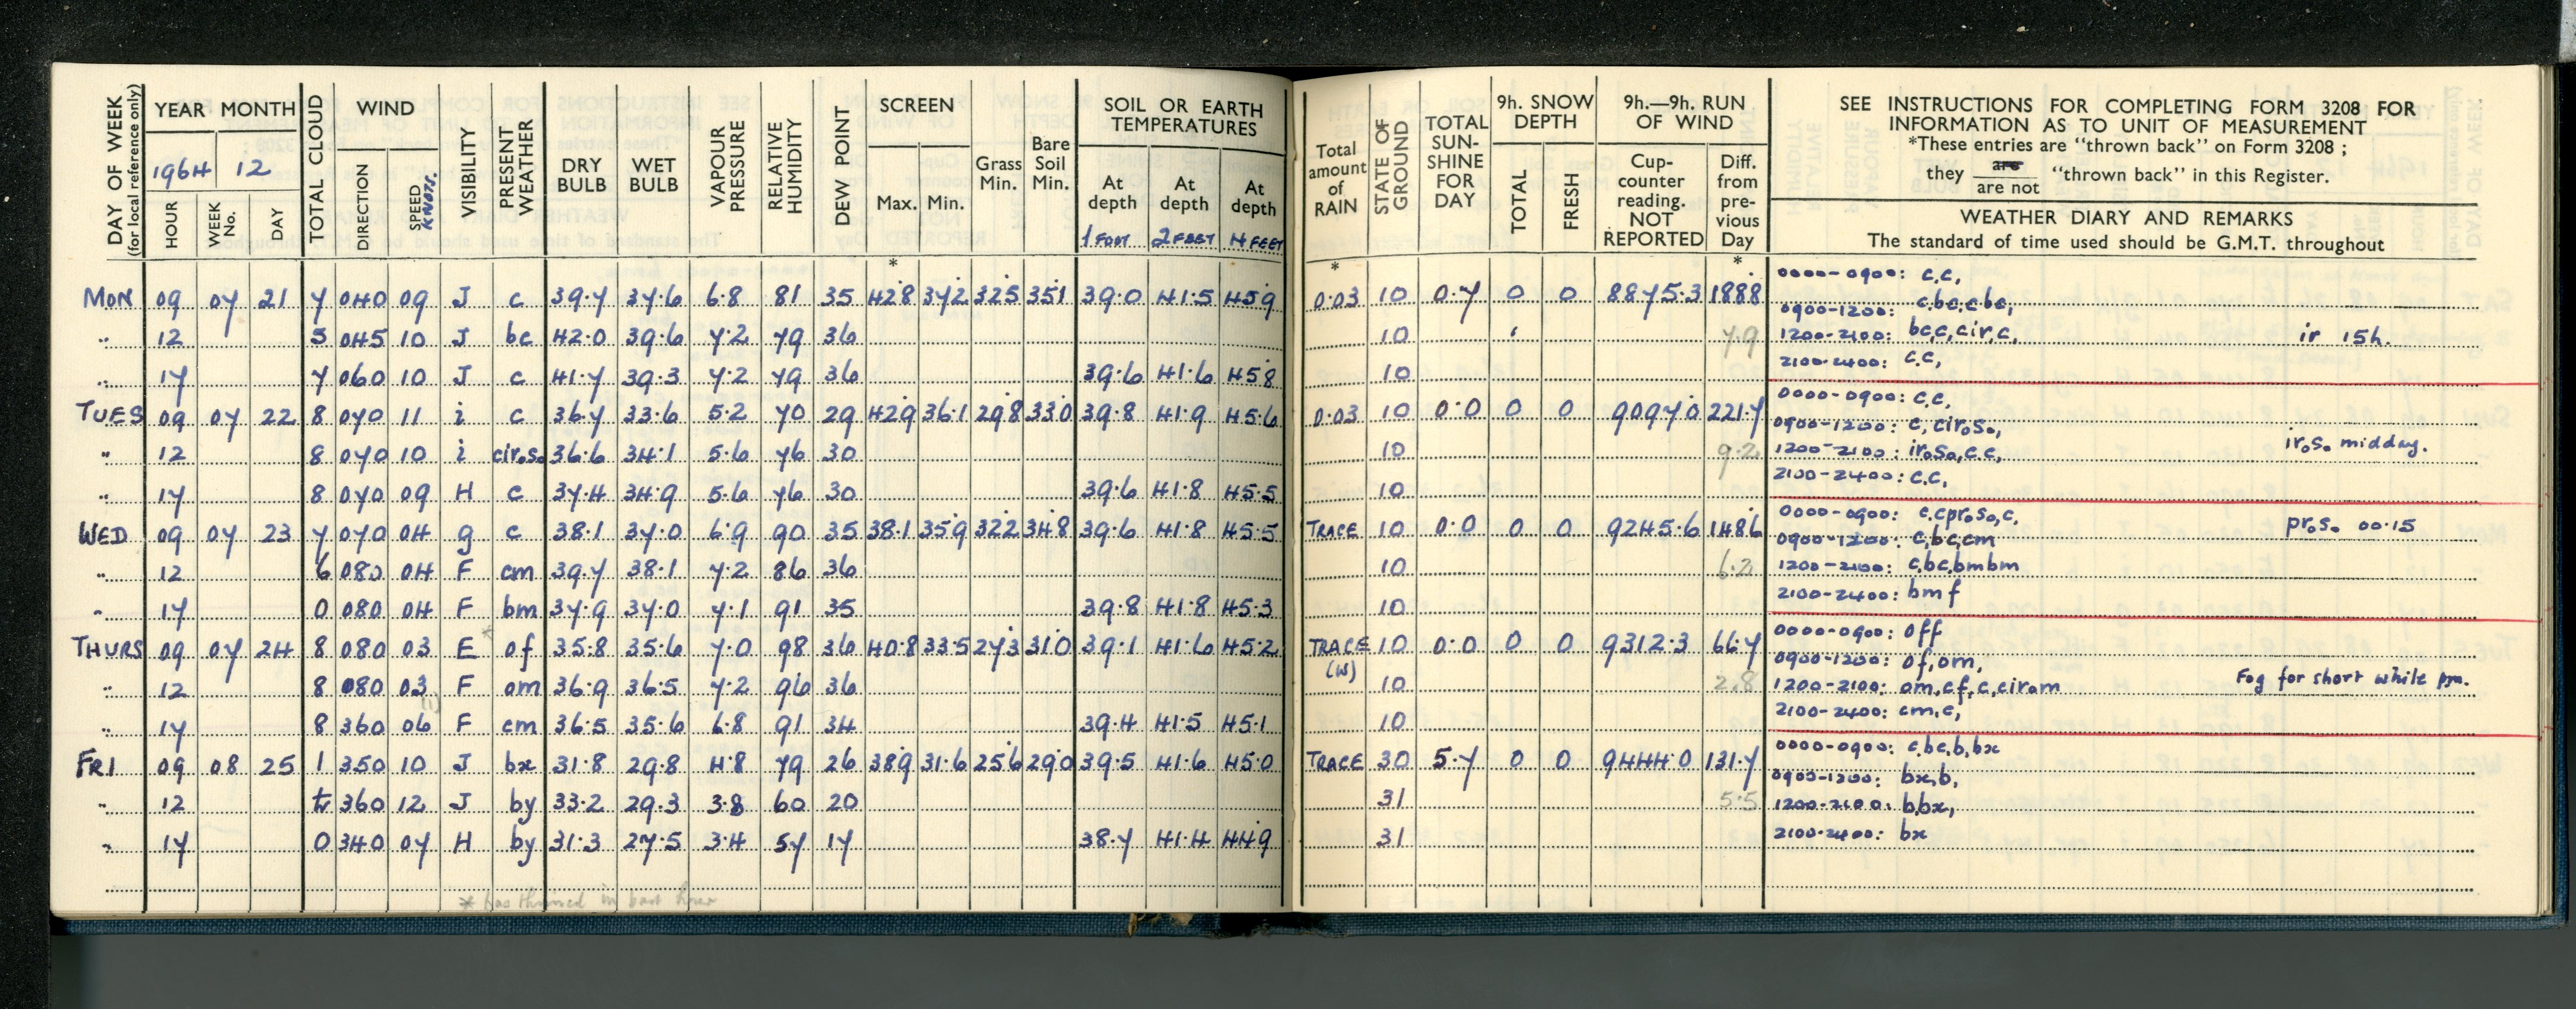 DAY OF WEEK (for local reference only) YEAR MONTH TOTAL CLOUD WIND VISIBILITY PRESENT WEATHER DRY BULB WET BULB VAPOUR PRESSURE RELATIVE HUMIDITY DEW POINT SCREEN Max. Min. Grass Min. Bare Soil Min. SOIL OR EARTH TEMPERATURES
1964 12 DIRECTION SPEED KNOTS. At depth At depth At depth
HOUR WEEK No. DAY 1 FOOT 2 FEET 4 FEET
Total amount of RAIN STATE OF GROUND TOTAL SUN-SHINE FOR DAY 9h. SNOW DEPTH TOTAL FRESH 9h.—9h. RUN OF WIND Cup-counter reading. NOT REPORTED Diff. from pre-vious Day
SEE INSTRUCTIONS FOR COMPLETING FORM 3208 FOR
INFORMATION AS TO UNIT OF MEASUREMENT
*These entries are "thrown back" on Form 3208 ;
they are / are not "thrown back" in this Register.
WEATHER DIARY AND REMARKS
The standard of time used should be G.M.T. throughout
* * *
MON 09 07 21 7 040 09 J c 39.7 37.6 6.8 81 35 42.8 37.2 32.5 35.1 39.0 41.5 45.9 0.03 10 0.7 0 0 8875.3 188.8 0000-0900: c,c,
0900-1200: c,bc,c,bc,
" 12 5 045 10 J bc 42.0 39.6 7.2 79 36 10 7.9 1200-2100: bc,c,cir,c, ir 15h.
" 17 7 060 10 J c 41.7 39.3 7.2 79 36 39.6 41.6 45.8 10 2100-2400: c,c,
TUES 09 07 22 8 070 11 i c 36.7 33.6 5.2 70 29 42.9 36.1 29.8 33.0 39.8 41.9 45.6 0.03 10 0.0 0 0 9097.0 221.7 0000-0900: c,c,
0900-1200: c, ciroso,
" 12 8 070 10 i ciroso 36.6 34.1 5.6 76 30 10 9.2 1200-2100: iroso,c,c, iroso midday.
" 17 8 070 09 H c 37.4 34.9 5.6 76 30 39.6 41.8 45.5 10 2100-2400: c,c,
WED 09 07 23 7 070 04 g c 38.1 37.0 6.9 90 35 38.1 35.9 32.2 34.8 39.6 41.8 45.5 TRACE 10 0.0 0 0 9245.6 148.6 0000-0900: c,cproso,c, proso 00.15
0900-1200: c,bc,cm
" 12 6 080 04 F cm 39.7 38.1 7.2 86 36 10 6.2 1200-2100: c,bc,bmbm
" 17 0 080 04 F bm 37.9 37.0 7.1 91 35 39.8 41.8 45.3 10 2100-2400: bmf
THURS 09 07 24 8 080 03 E of 35.8 35.6 7.0 98 36 40.8 33.5 27.3 31.0 39.1 41.6 45.2 TRACE (W) 10 0.0 0 0 9312.3 66.7 0000-0900: off
0900-1200: of,om,
" 12 8 080 03 F om 36.9 36.5 7.2 96 36 10 2.8 1200-2100: om,cf,c,cirom Fog for short while pm.
" 17 8 360 06 F cm 36.5 35.6 6.8 91 34 39.4 41.5 45.1 10 2100-2400: cm,c,
FRI 09 08 25 1 350 10 J bx 31.8 29.8 4.8 79 26 38.9 31.6 25.6 29.0 39.5 41.6 45.0 TRACE 30 5.7 0 0 9444.0 131.7 0000-0900: c,bc,b,bx
0900-1200: bx,b,
" 12 tr 360 12 J by 33.2 29.3 3.8 60 20 31 5.5 1200-2100: b,bx,
" 17 0 340 07 H by 31.3 27.5 3.4 57 17 38.7 41.4 44.9 31 2100-2400: bx
* has thinned in last hour